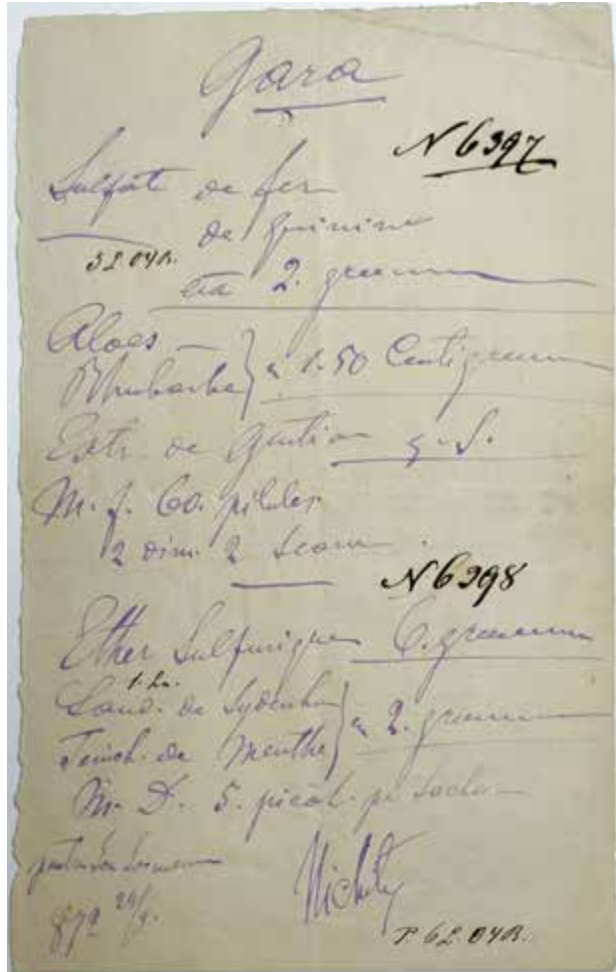 Gara
N 6397
Sulfat de fer
de quinine
aa 2. gramm
3 L 04 B.
Aloes —
Rhubarbe } a 1.50 Centigramm
Extr. de Gentian q. S.
M. f. 60. pilule.
2 dim. 2 seara.
N 6398
Ether Sulfurique 6. gramm
1. Ln.
Laud. de Sydenham
Teinct. de Menthe } a 2. gramm
M. D. 5. picat. pe
872 29/9.
P 6 L. 04 B.